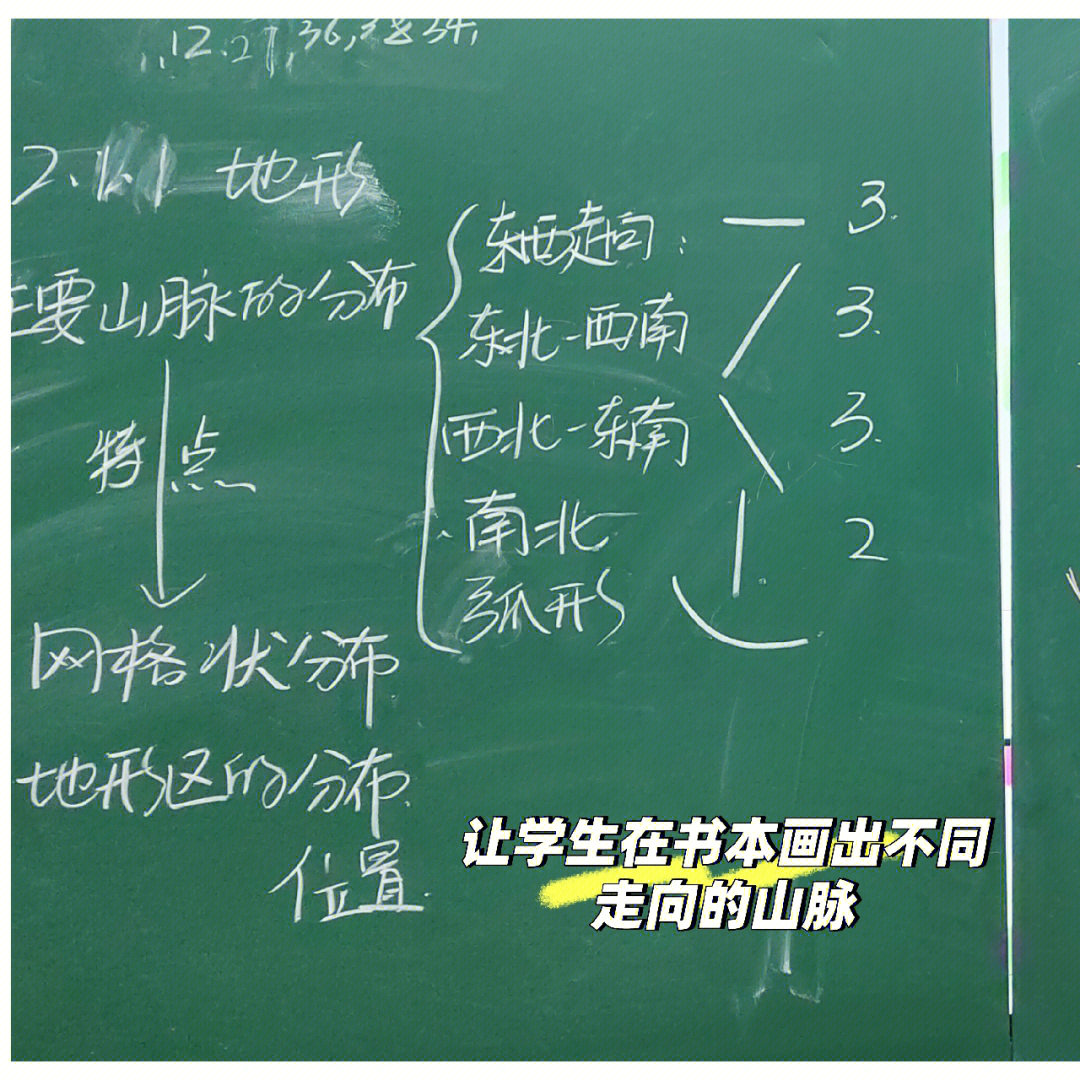 2.1.1 地形
主要山脉的分布
东西走向： — 3.
东北-西南 / 3.
西北-东南 \ 3.
南北 | 2
弧形
特点
网格状分布
地形区的分布
位置.
让学生在书本画出不同
走向的山脉